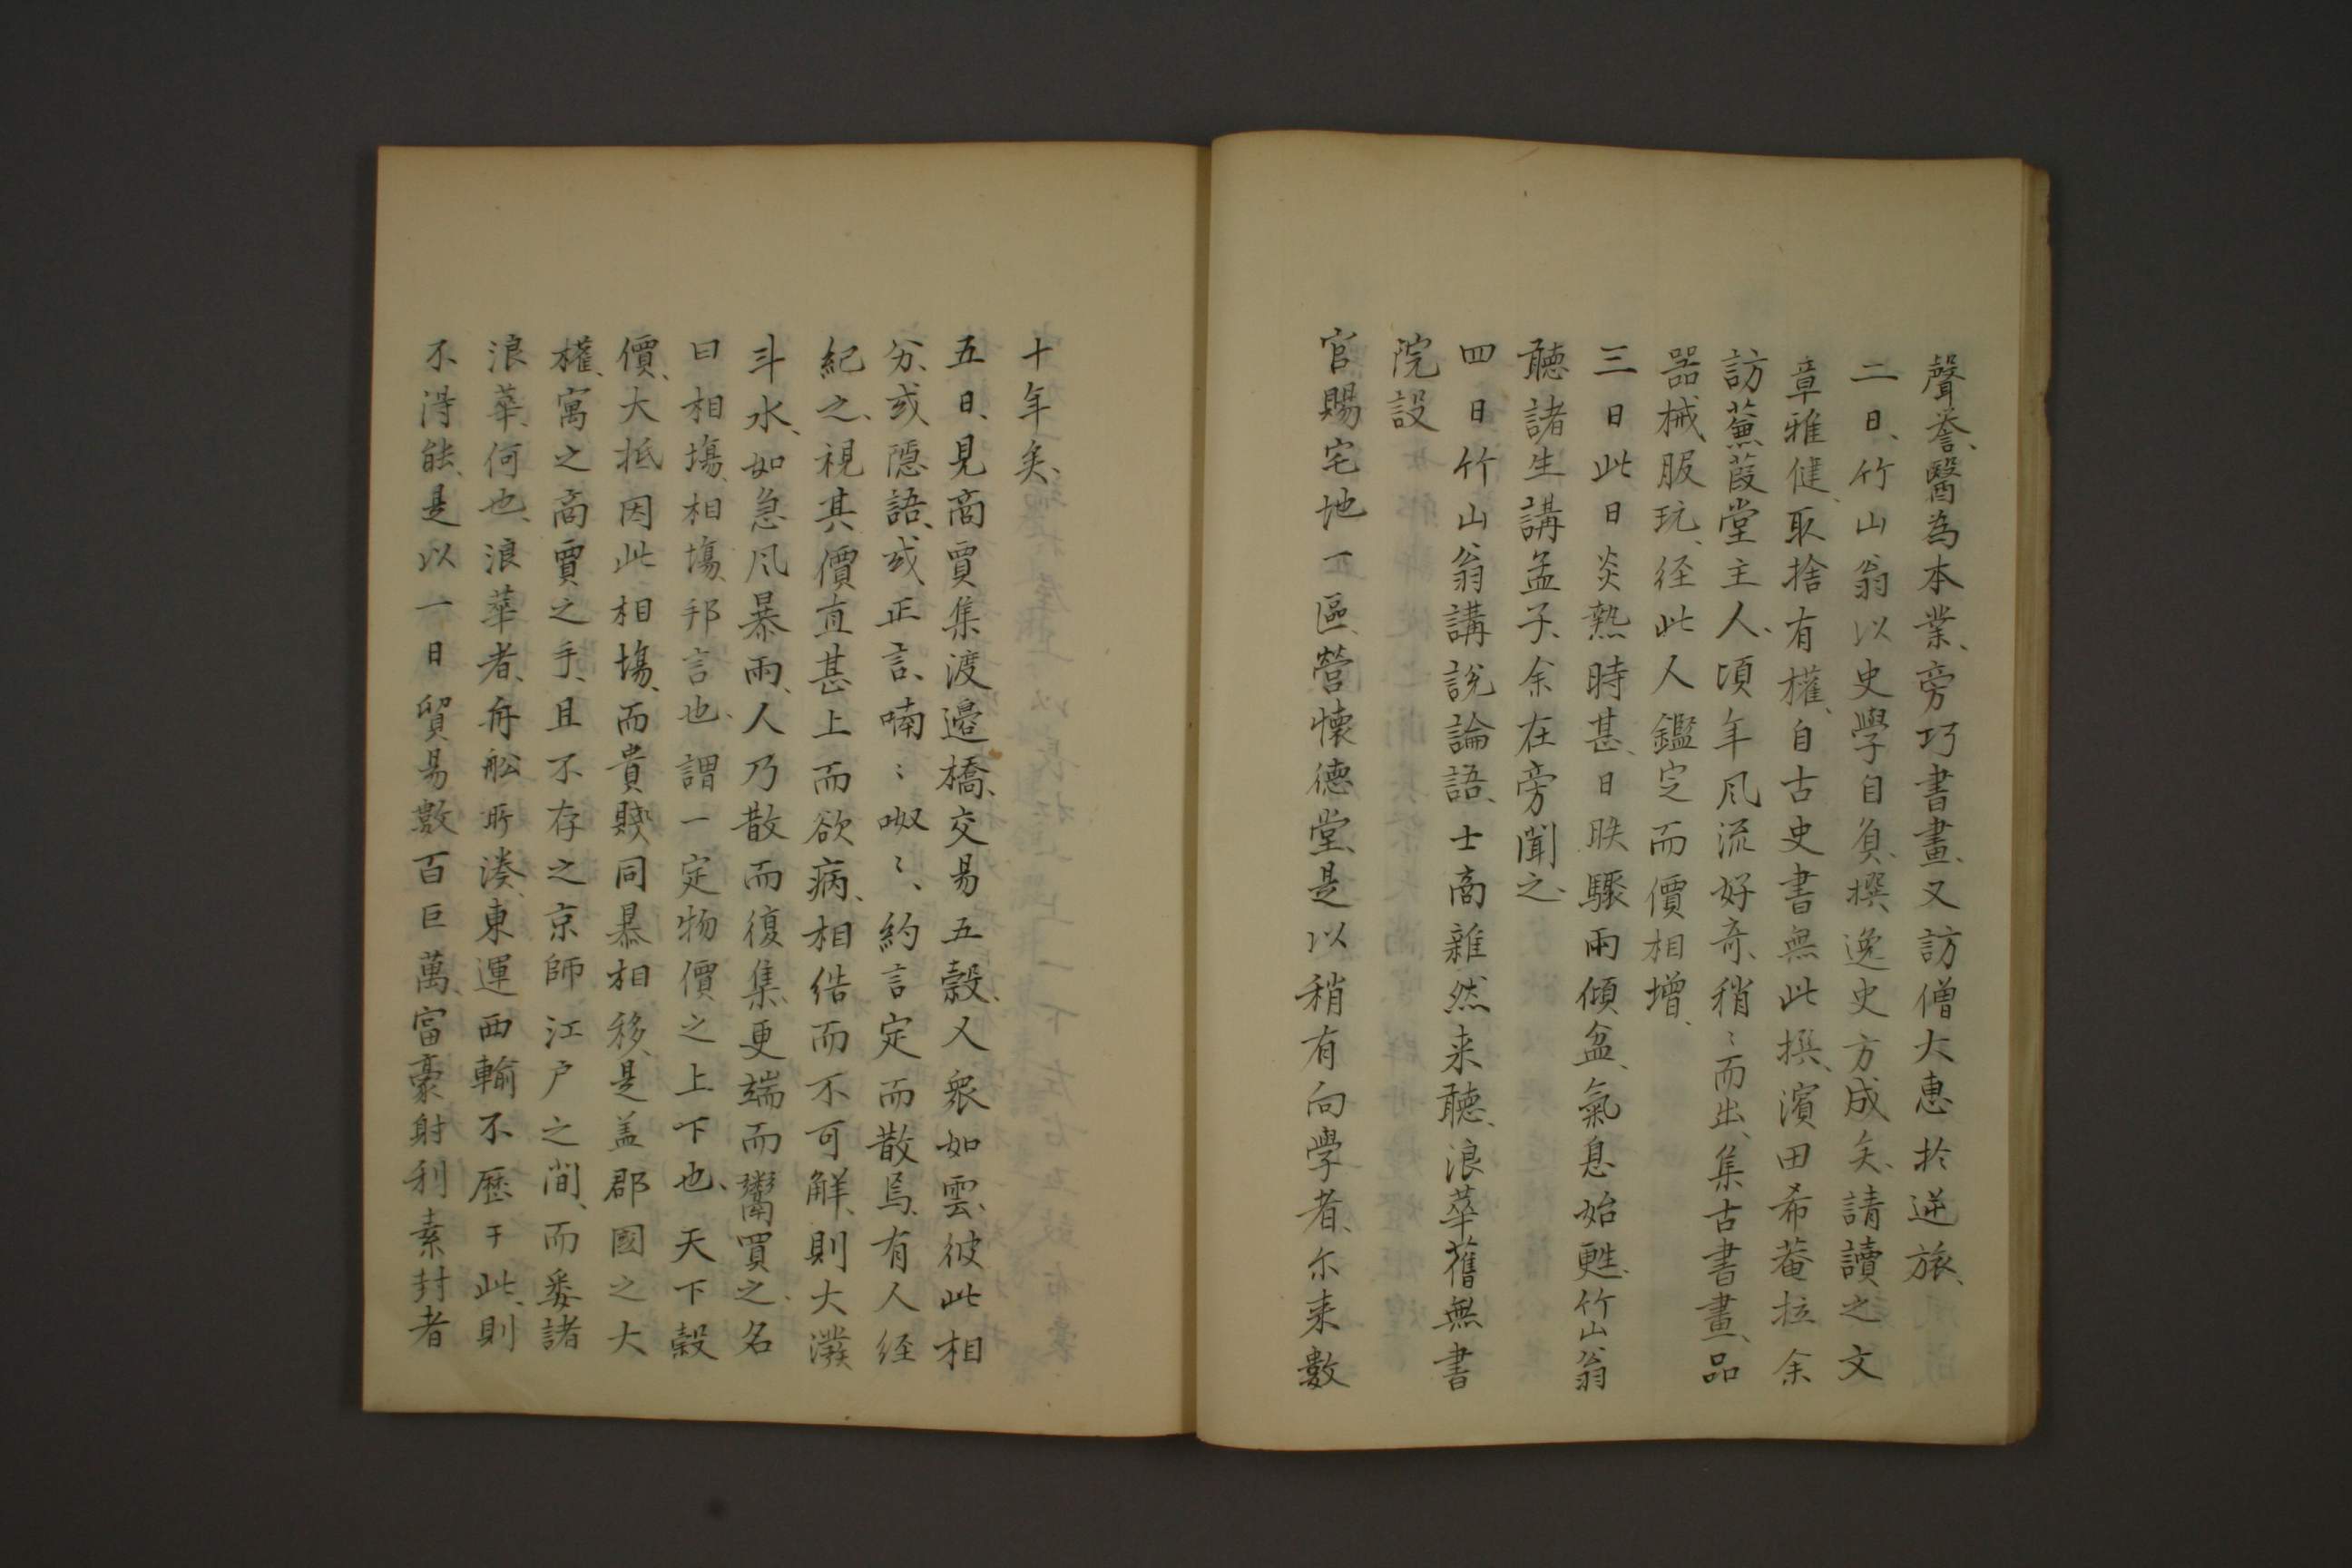 聲誉、醫為本業、旁巧書畫、又訪僧大惠於逆旅、
二日、竹山翁以史學自負、撰逸史方成矣、請讀之文
章雅健、取捨有權、自古史書無此撰、濱田希菴拉余
訪蒹葭堂主人、頃年風流好奇、稍〻而出、集古書畫、品
器械服玩、径此人鑑定而價相增、
三日此日炎熱時甚、日昳驟雨傾盆、氣息始甦、竹山翁
聽諸生講孟子、余在旁聞之、
四日竹山翁講說論語、士商雜然来聽、浪華舊無書
院設
官賜宅地一區、營懐德堂、是以稍有向學者、尓来數
十年矣、
五日、見商賈集渡邉橋、交易五穀、人衆如雲、彼此相
分、或隱語、或正言、喃〻呶〻、約言定而散焉、有人径
紀之、視其價直甚上而欲病、相結而不可解、則大潑
斗水、如急風暴雨、人乃散而復集、更端而鬻買之、名
曰相塲、相塲邦言也、謂一定物價之上下也、天下穀
價、大抵因此相塲、而貴賤同暴相移、是盖郡國之大
權、寓之商賈之手、且不存之京師江户之間、而委諸
浪華、何也、浪華者、舟舩所湊、東運西輸不歴于此、則
不得能、是以一日貿易數百巨萬、富豪射利素封者